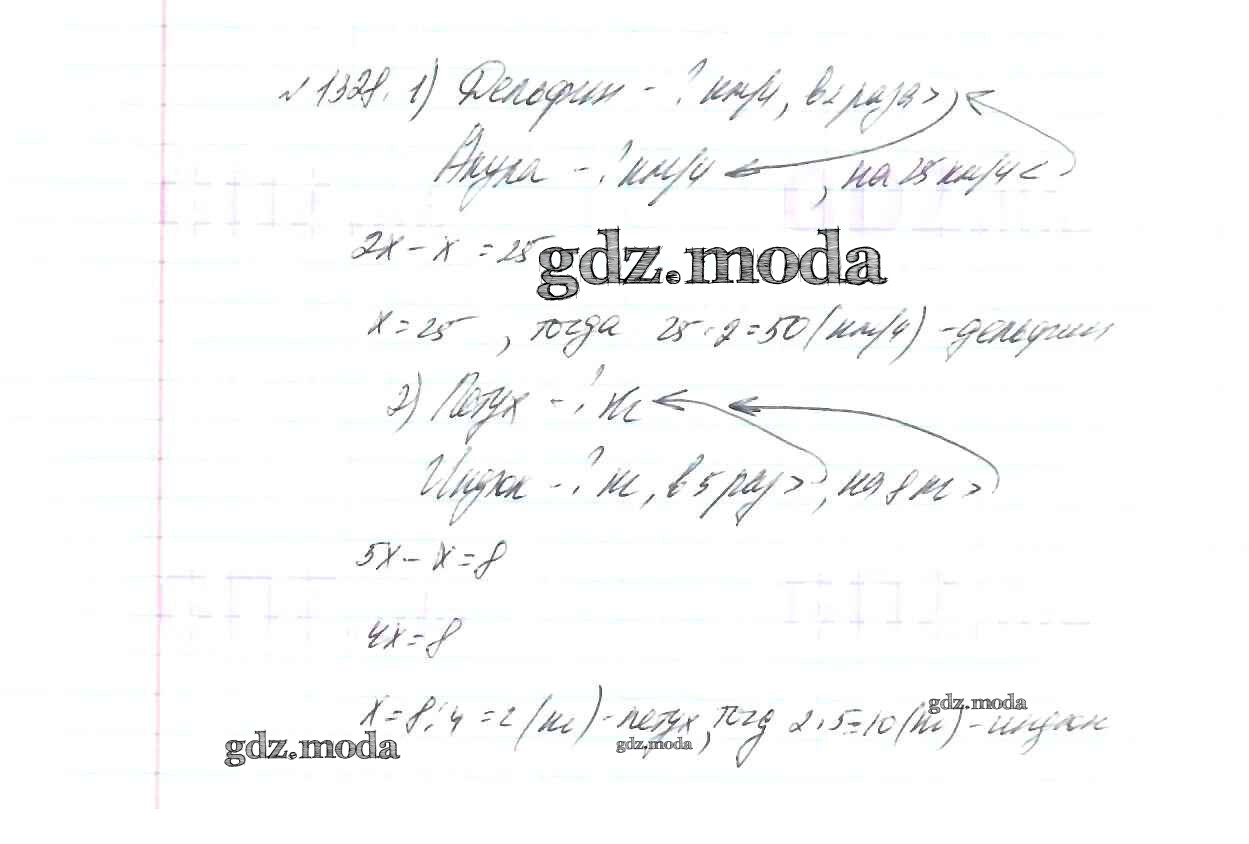 №1328. 1) Дельфин - ? км/ч, в 2 раза >,
Акула - ? км/ч, на 25 км/ч <
2x - x = 25
gdz.moda
x = 25, тогда 25 · 2 = 50 (км/ч) - дельфин
2) Петух - ? кг
Индюк - ? кг, в 5 раз >, на 8 кг >
5x - x = 8
4x = 8
gdz.moda
x = 8 : 4 = 2 (кг) - петух, тогд 2 · 5 = 10 (кг) - индюк
gdz.moda
gdz.moda